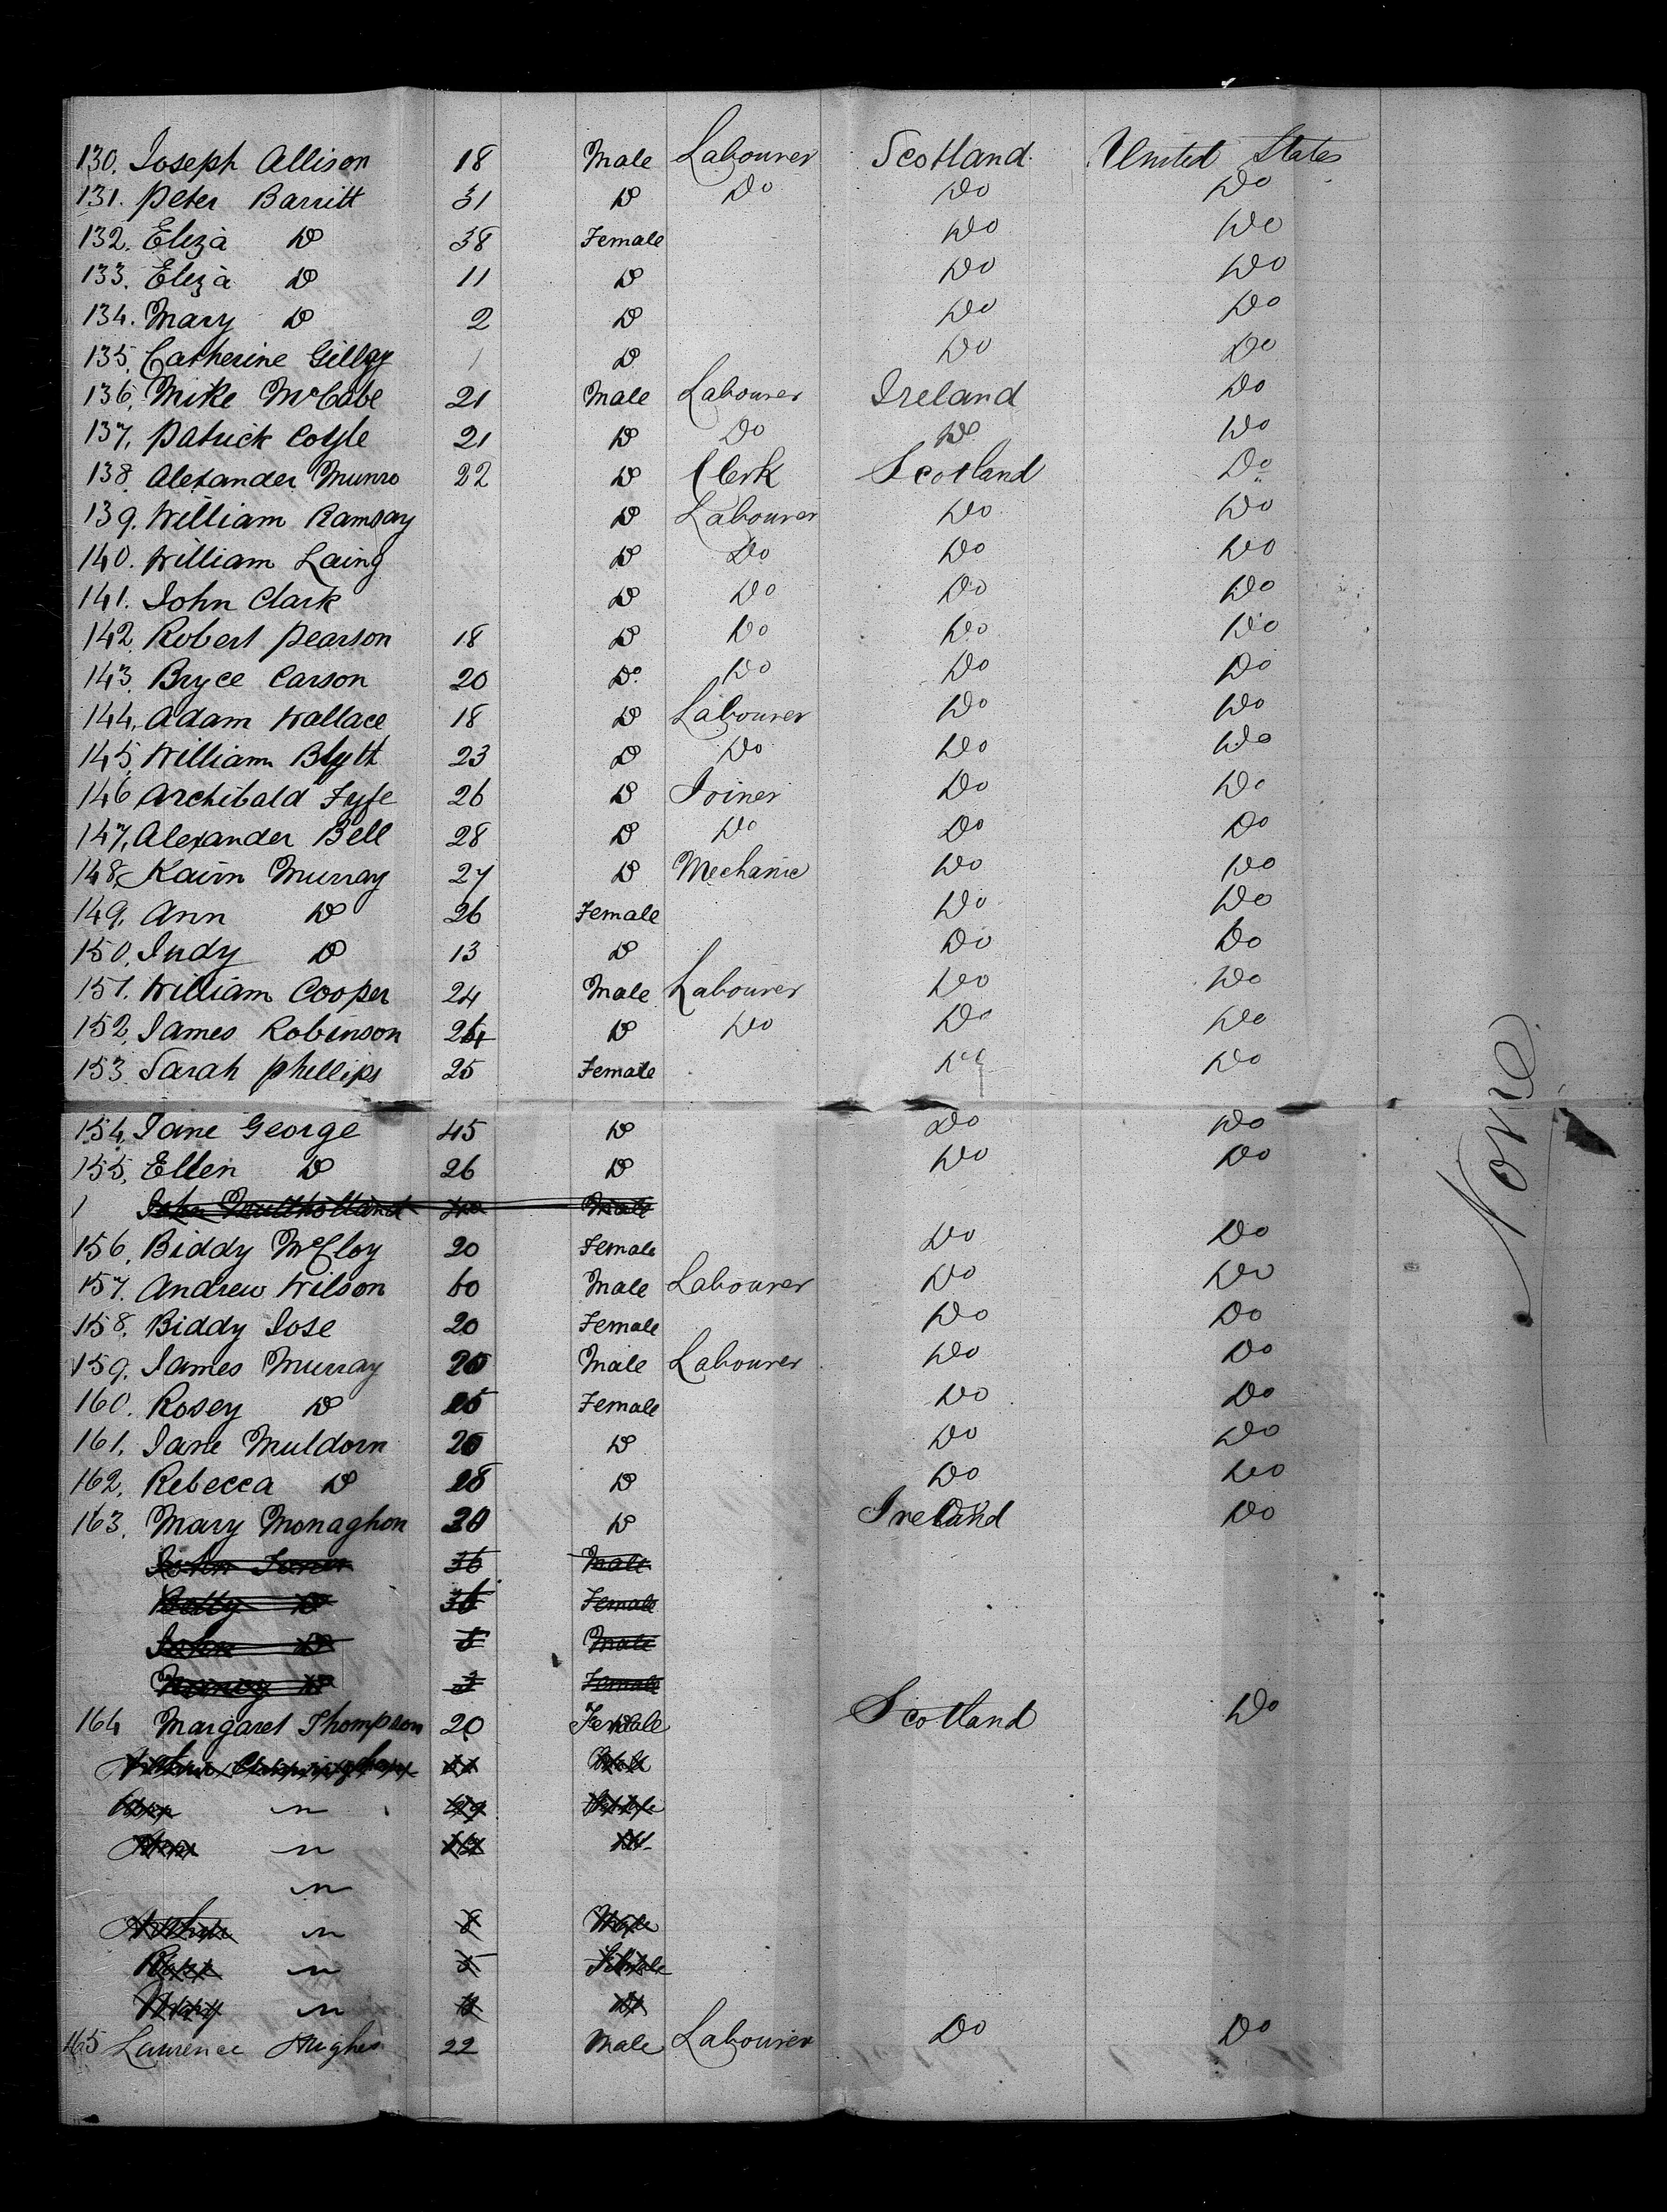 130. Joseph Allison 18 Male Labourer Scotland United States
131. Peter Barritt 31 Do Do Do Do
132. Eliza Do 38 Female Do Do
133. Eliza Do 11 Do Do Do
134. Mary Do 2 Do Do Do
135. Catherine 1 Do Do Do
136. Mike McCabe 21 Male Labourer Ireland Do
137. Patrick Coyle 21 Do Do Do Do
138. Alexander Munro 22 Do Clerk Scotland Do
139. William Ramsay Do Labourer Do Do
140. William Laing Do Do Do Do
141. John Clark Do Do Do Do
142. Robert Pearson 18 Do Do Do Do
143. Bryce Carson 20 Do Do Do Do
144. Adam Wallace 18 Do Labourer Do Do
145. William Blytt 23 Do Do Do Do
146 Archibald Fyfe 26 Do Joiner Do Do
147. Alexander Bell 28 Do Do Do Do
148. Kairn Murray 27 Do Mechanic Do Do
149. Ann Do 26 Female Do Do
150. Judy Do 13 Do Do Do
151. William Cooper 24 Male Labourer Do Do
152. James Robinson 24 Do Do Do Do
153 Sarah Phellips 25 Female Do Do
154. Jane George 45 Do Do Do
155. Ellen Do 26 Do Do Do
1 John Mullholland Male
156. Biddy McCloy 20 Female Do Do
157. Andrew Wilson 60 Male Labourer Do Do
158. Biddy Jose 20 Female Do Do
159. James Murray Male Labourer Do Do
160. Rosey Do Female Do Do
161. Jane Muldorn Do Do Do
162. Rebecca Do Do Do Do
163. Mary Monaghon Do Ireland Do
John 36 Male
Betty Do 36 Female
John Do Male
Do Female
164 Margaret Thompson 20 Female Scotland Do
Male
Arthur 8 Male
165 Laurence Hughes 22 Male Labourer Do Do
None